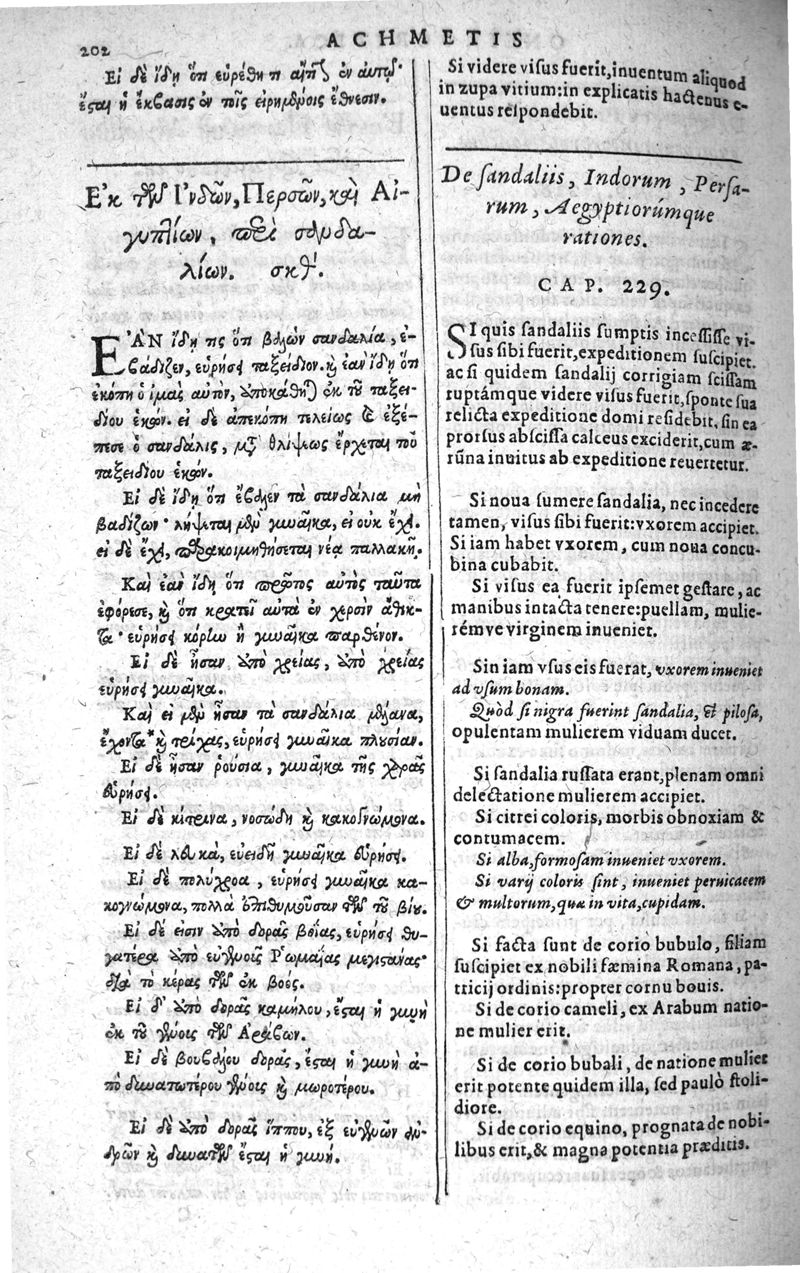 202
ACHMETIS
Εἰ δὲ ἴδῃ ὅτι εὑρέθη τι αὐτῆς ἐν αὐτῷ·
ἔσται ἡ ἔκβασις ἐν τοῖς εἰρημένοις ἔθνεσιν.
Ἐκ τῶν Ἰνδῶν, Περσῶν, καὶ Αἰ-
γυπτίων, περὶ σανδα-
λίων. σκθʹ.
ἘΑΝ ἴδῃ τις ὅτι βαλὼν σανδάλια, ἐ-
βάδιζεν, εὑρήσει ταξείδιον. καὶ ἐὰν ἴδῃ ὅτι
ἐκόπη ὁ ἱμὰς αὐτῶν, ὑποκαθῆται ἐκ τοῦ ταξει-
δίου ἑκών. εἰ δὲ ἀπεκόπη τελείως καὶ ἐξέ-
πεσε ὁ σανδάλις, μετὰ θλίψεως ἔρχεται τοῦ
ταξειδίου ἑκών.
Εἰ δὲ ἴδῃ ὅτι ἔβαλεν τὰ σανδάλια μὴ
βαδίζων· λήψεται μὲν γυναῖκα, εἰ οὐκ ἔχει.
εἰ δὲ ἔχει, παρακοιμηθήσεται νέᾳ παλλακῇ.
Καὶ ἐὰν ἴδῃ ὅτι πρῶτος αὐτὸς ταῦτα
ἐφόρεσε, καὶ ὅτι κρατεῖ αὐτὰ ἐν χερσὶν ἄθικ-
τα· εὑρήσει κόριω ἢ γυναῖκα παρθένον.
Εἰ δὲ ἦσαν ἀπὸ χρείας, ἀπὸ χρείας
εὑρήσει γυναῖκα.
Καὶ εἰ μὲν ἦσαν τὰ σανδάλια μέλανα,
ἔχοντα καὶ τρίχας, εὑρήσει γυναῖκα πλυσίαν.
Εἰ δὲ ἦσαν ῥούσια, γυναῖκα τῆς χαρᾶς
εὑρήσει.
Εἰ δὲ κίτρινα, νοσώδη καὶ κακογνώμονα.
Εἰ δὲ λευκὰ, εὐειδῆ γυναῖκα εὑρήσει.
Εἰ δὲ πολύχροα, εὑρήσει γυναῖκα κα-
κογνώμονα, πολλὰ ἐπιθυμοῦσαν τῶν τοῦ βίου.
Εἰ δέ εἰσιν ἀπὸ δορᾶς βοείας, εὑρήσει θυ-
γατέρα ἀπὸ εὐγενοῦς Ῥωμαίας μεγιστάνας·
διὰ τὸ κέρας τῶν ἐκ βοός.
Εἰ δʹ ἀπὸ δορᾶς καμήλου, ἔσται ἡ γυνὴ
ἐκ τοῦ γένους τῶν Ἀράβων.
Εἰ δὲ βουβάλου δορᾶς, ἔσται ἡ γυνὴ ἀ-
πὸ δυνατωτέρου γένους καὶ μωροτέρου.
Εἰ δὲ ἀπὸ δορᾶς ἵππου, ἐξ εὐγενῶν ἀν-
δρῶν καὶ δυνατῶν ἔσται ἡ γυνή.
Si videre visus fuerit, inuentum aliquod
in zupa vitium: in explicatis hactenus e-
uentus respondebit.
De sandaliis, Indorum, Persa-
rum, Aegyptiorúmque
rationes.
CAP. 229.
SI quis sandaliis sumptis incessisse vi-
sus sibi fuerit, expeditionem suscipiet.
ac si quidem sandalij corrigiam scissam
ruptámque videre visus fuerit, sponte sua
relicta expeditione domi residebit. sin ea
prorsus abscissa calceus exciderit, cum æ-
rũna inuitus ab expeditione reuertetur.
Si noua sumere sandalia, nec incedere
tamen, visus sibi fuerit: vxorem accipiet.
Si iam habet vxorem, cum noua concu-
bina cubabit.
Si visus ea fuerit ipsemet gestare, ac
manibus intacta tenere: puellam, mulie-
rémve virginem inueniet.
Sin iam vsus eis fuerat, vxorem inueniet
ad vsum bonam.
Quòd si nigra fuerint sandalia, & pilosa,
opulentam mulierem viduam ducet.
Si sandalia russata erant, plenam omni
delectatione mulierem accipiet.
Si citrei coloris, morbis obnoxiam &
contumacem.
Si alba, formosam inueniet vxorem.
Si varij coloris sint, inueniet peruicacem
& multorum, quæ in vita, cupidam.
Si facta sunt de corio bubulo, filiam
suscipiet ex nobili fæmina Romana, pa-
tricij ordinis: propter cornu bouis.
Si de corio cameli, ex Arabum natio-
ne mulier erit.
Si de corio bubali, de natione mulier
erit potente quidem illa, sed paulò stoli-
diore.
Si de corio equino, prognata de nobi-
libus erit, & magna potentia præditis.